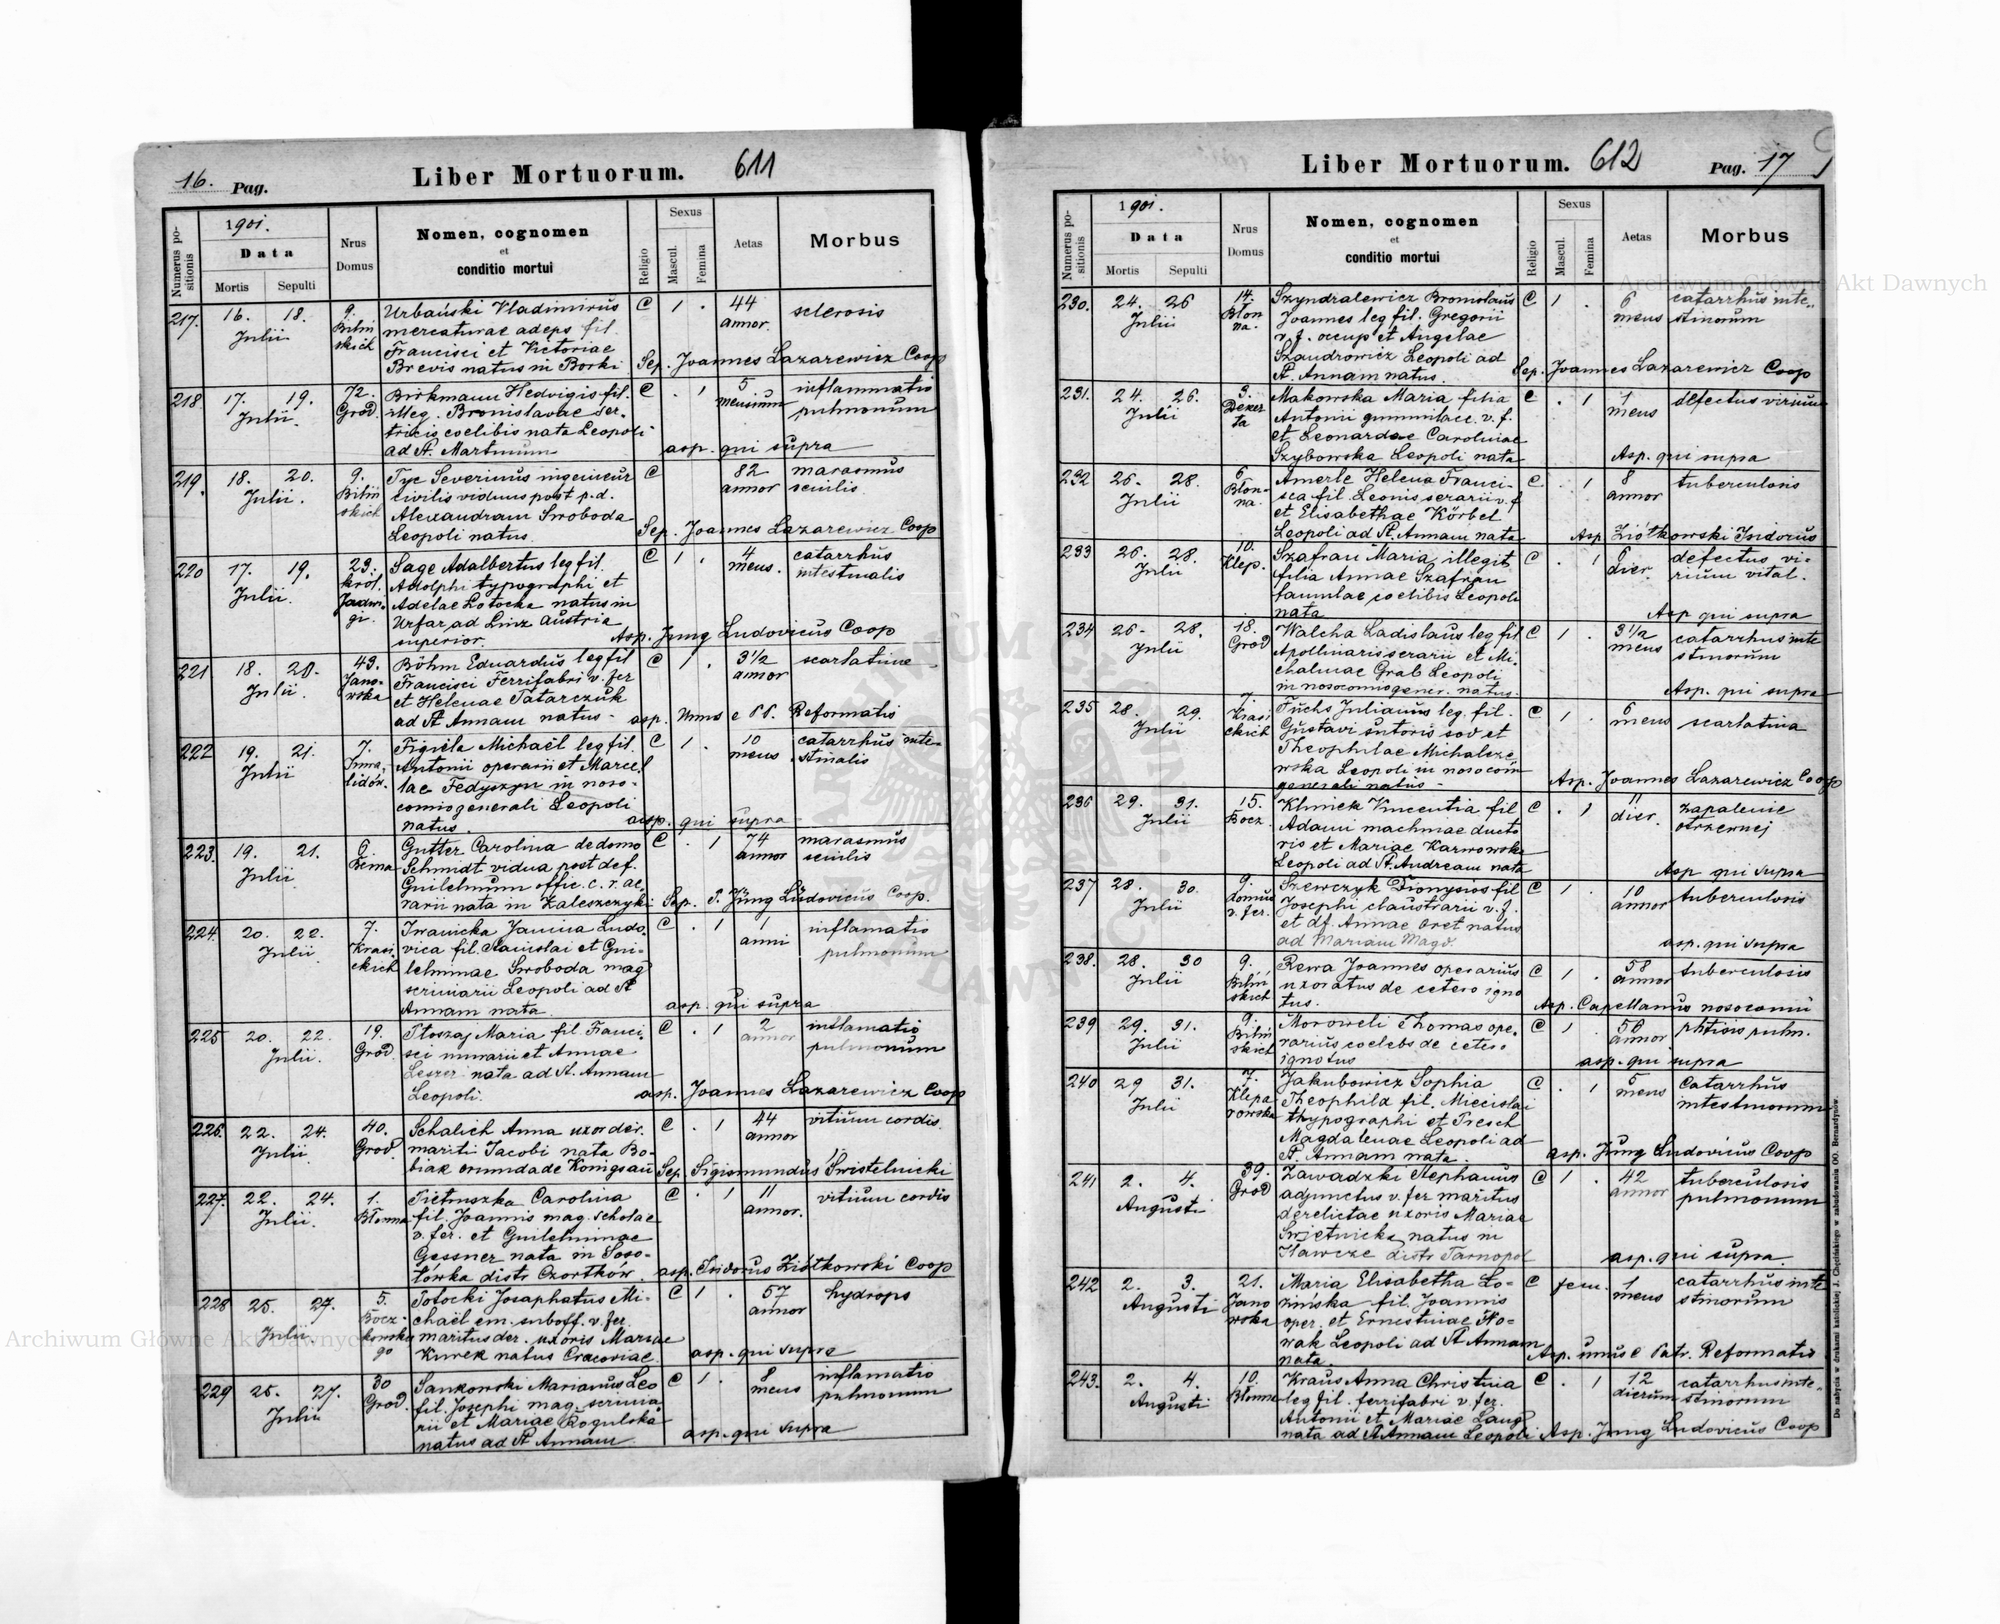 16. Pag.
Liber Mortuorum.
611
Numerus positionis
1901.
Data
Mortis
Sepulti
Nrus Domus
Nomen, cognomen
et
conditio mortui
Religio
Sexus
Mascul.
Femina
Aetas
Morbus
217. 16. 18. 9. Urbański Vladimirus C 1 . 44 sclerosis
Julii Biliń mercaturae adeps fil. annor.
skich Francisci et Victoriae
Brevis natus in Borki Sep. Joannes Lazarewicz Coop
218 17. 19. 72. Birkmann Hedvigis fil. C . 1 5 inflammatio
Julii. Grod. illeg. Bronislavae ser- mensium pulmonum
tricis coelibis nata Leopoli
ad St. Martinum asp. qui supra
219. 18. 20. 9. Tyc Severinus ingenieur C 82 marasmus
Julii. Biliń civilis viduus post p.d. annor senilis
skich Alexandram Swoboda
Leopoli natus. Sep. Joannes Lazarewicz Coop
220 17. 19. 23. Sage Adalbertus leg fil. C 1 . 4 catarrhus
Julii. król. Adolphi typographi et mens. intestinalis
Jadwi- Adelae Lotocka natus in
gi. Urfar ad Linz Austria
superior. Asp. Jung Ludovicus Coop
221 18. 20. 43. Böhm Eduardus leg fil C 1 . 3 1/2 scarlatina
Julii. Jano- Francisci Ferrifabri v. fer annor
wska et Helenae Tatarczuk
ad St Annam natus- asp. Unus e PP. Reformatis
222 19. 21. 7. Figiela Michaël leg fil. C 1 . 10 catarrhus inte-
Julii Inwa- Antonii operarii et Marcel mens stinalis
lidów. lae Fedyszyn in noso-
comio generali Leopoli
natus. asp. qui supra
223. 19. 21. 6. Gutter Carolina de domo C . 1 74 marasmus
Julii Zimna Schmidt vidua post def. annor senilis
Guilelmum offic. c. r. ae-
rarii nata in Zaleszczyki Sep. P. Jung Ludovicus Coop.
224. 20. 22. 7. Iwanicka Janina Ludo- C . 1 1 inflamatio
Julii Krasi vica fil. Stanislai et Gui- anni pulmonum
ckich lelminae Swoboda mag
scriniarii Leopoli ad St
Annam nata. asp. qui supra
225 20. 22. 19. Płoszaj Maria fil. Franci- C . 1 2 inflamatio
Julii. Grod. sci murarii et Annae annor pulmonum
Leszer nata ad St. Annam
Leopoli. asp. Joannes Lazarewicz Coop
226. 22. 24. 40. Schalich Anna uxor der. C . 1 44 vitium cordis.
Julii Grod. mariti Jacobi nata Bo- annor
biak oriunda de Königsau Sep. Sigismundus Świstelnicki
227. 22. 24. 1. Pietruszka Carolina C . 1 11 vitium cordis
Julii. Błonna fil. Joannis mag. scholae annor.
v. fer. et Guilelminae
Gessner nata in Soso-
lówka distr Czortków. asp. Isidorus Ziółkowski Coop
228 25. 27. 5. Potocki Josaphatus Mi- C 1 . 57 hydrops
Julii Bocz- chaël em. suboff. v. fer. annor
kowskie maritus der. uxoris Mariae
go Kurek natus Cracoviae asp. qui supra
229 25. 27. 30 Sankowski Marianus Leo C 1 . 8 inflamatio
Julii Grod. fil. Josephi mag. scrinia- mens pulmonum
rii et Mariae Rogulska
natus ad St Annam asp. qui supra
Liber Mortuorum.
612
Pag. 17
Numerus positionis
1901.
Data
Mortis
Sepulti
Nrus Domus
Nomen, cognomen
et
conditio mortui
Religio
Sexus
Mascul.
Femina
Aetas
Morbus
230. 24. 26 14. Szyndralewicz Bronislaus C 1 . 6 catarrhus inte-
Julii Błon Joannes leg fil. Gregorii mens stinorum
na. v. f. occup et Angelae
Szandrowicz Leopoli ad
St. Annam natus. Sep. Joannes Lazarewicz Coop
231. 24. 26. 3. Makowska Maria filia C . 1 1 defectus virium
Julii Dezer Antonii v. f. mens
ta et Leonardae Carolinae
Szybowska Leopoli nata Asp. qui supra
232 26. 28. 6 Amerle Helena Franci- C . 1 8 tuberculosis
Julii Błon- sca fil. Leonis serarii v. f annor
na. et Elisabethae Körbel
Leopoli ad St. Annam nata Asp. Ziółkowski Isidorus
233 26. 28. 10. Szafran Maria illegit C . 1 6 defectus vi-
Julii Klep. filia Annae Szafran dier. rium vital.
famulae coelibis Leopoli
nata Asp qui supra
234 26. 28. 18. Walcha Ladislaus leg fil C 1 . 3 1/2 catarrhus inte
Julii Grod Apollinaris serarii et Mi- mens stinorum
chalinae Grab Leopoli
in nosocomio gener. natus. Asp. qui supra
235 28. 29. 7. Fuchs Julianus leg. fil. C 1 . 6 scarlatina
Julii Krasi Gustavi sutoris sod et mens
ckich Theophilae Michalcze-
wska Leopoli in nosocom
generali natus- Asp. Joannes Lazarewicz Coop
236 29. 31. 15. Klimek Vincentia fil C . 1 11 zapalenie
Julii Bocz Adami machinae ducto dier. otrzewnej
ris et Mariae Karwowska
Leopoli ad St. Andream nata Asp qui supra
237 28. 30. 9. Szewczyk Dionysios fil C 1 . 10 tuberculosis
Julii Domus Josephi claustrarii v. f. annor
v. fer. et df. Annae Bret natus
ad Mariam Magd. asp. qui supra
238. 28. 30 9. Rewa Joannes operarius C 1 . 58 tuberculosis
Julii Biliń uxoratus de cetero igno annor
skich tus. Asp. Capellanus nosocomii
239 29. 31. 9. Moroweli Thomas ope- C 1 . 56 phtisis pulm.
Julii Biliń rarius coelebs de cetero annor
skich ignotus asp. qui supra
240 29 31. 7. Jakubowicz Sophia C . 1 5 Catarrhus
Julii Klepa Theophila fil. Miecislai mens intestinorum
rowska thypographi et Tresch
Magdalenae Leopoli ad
St. Annam nata. asp. Jung Ludovicus Coop
241 2. 4. 39. Zawadzki Stephanus C 1 . 42 tuberculosis
Augusti Grod adjunctus v. fer maritus annor pulmonum
derelictae uxoris Mariae
Swjetnicka natus in
Iławcze distr Tarnopol asp. qui supra.
242 2. 3. 21. Maria Elisabetha Ło- C fem. 1 catarrhus inte
Augusti Jano zińska fil. Joannis mens stinorum
wska oper. et Ernestinae No-
wak Leopoli ad St Annam
nata. Asp. unus e Patr. Reformatis
243. 2. 4. 10. Kraus Anna Christina C . 1 12 catarrhus inte-
Augusti Błonna leg fil. ferrifabri v. fer. dierum stinorum
Antonii et Mariae Lang
nata ad St Annam Leopoli Asp. Jung Ludovicus Coop
Do nabycia w drukarni katolickiej J. Chęcińskiego w zabudowaniu OO. Bernardynów.
Archiwum Główne Akt Dawnych
Archiwum Główne Akt Dawnych
ARCHIWUM GŁÓWNE AKT DAWNYCH